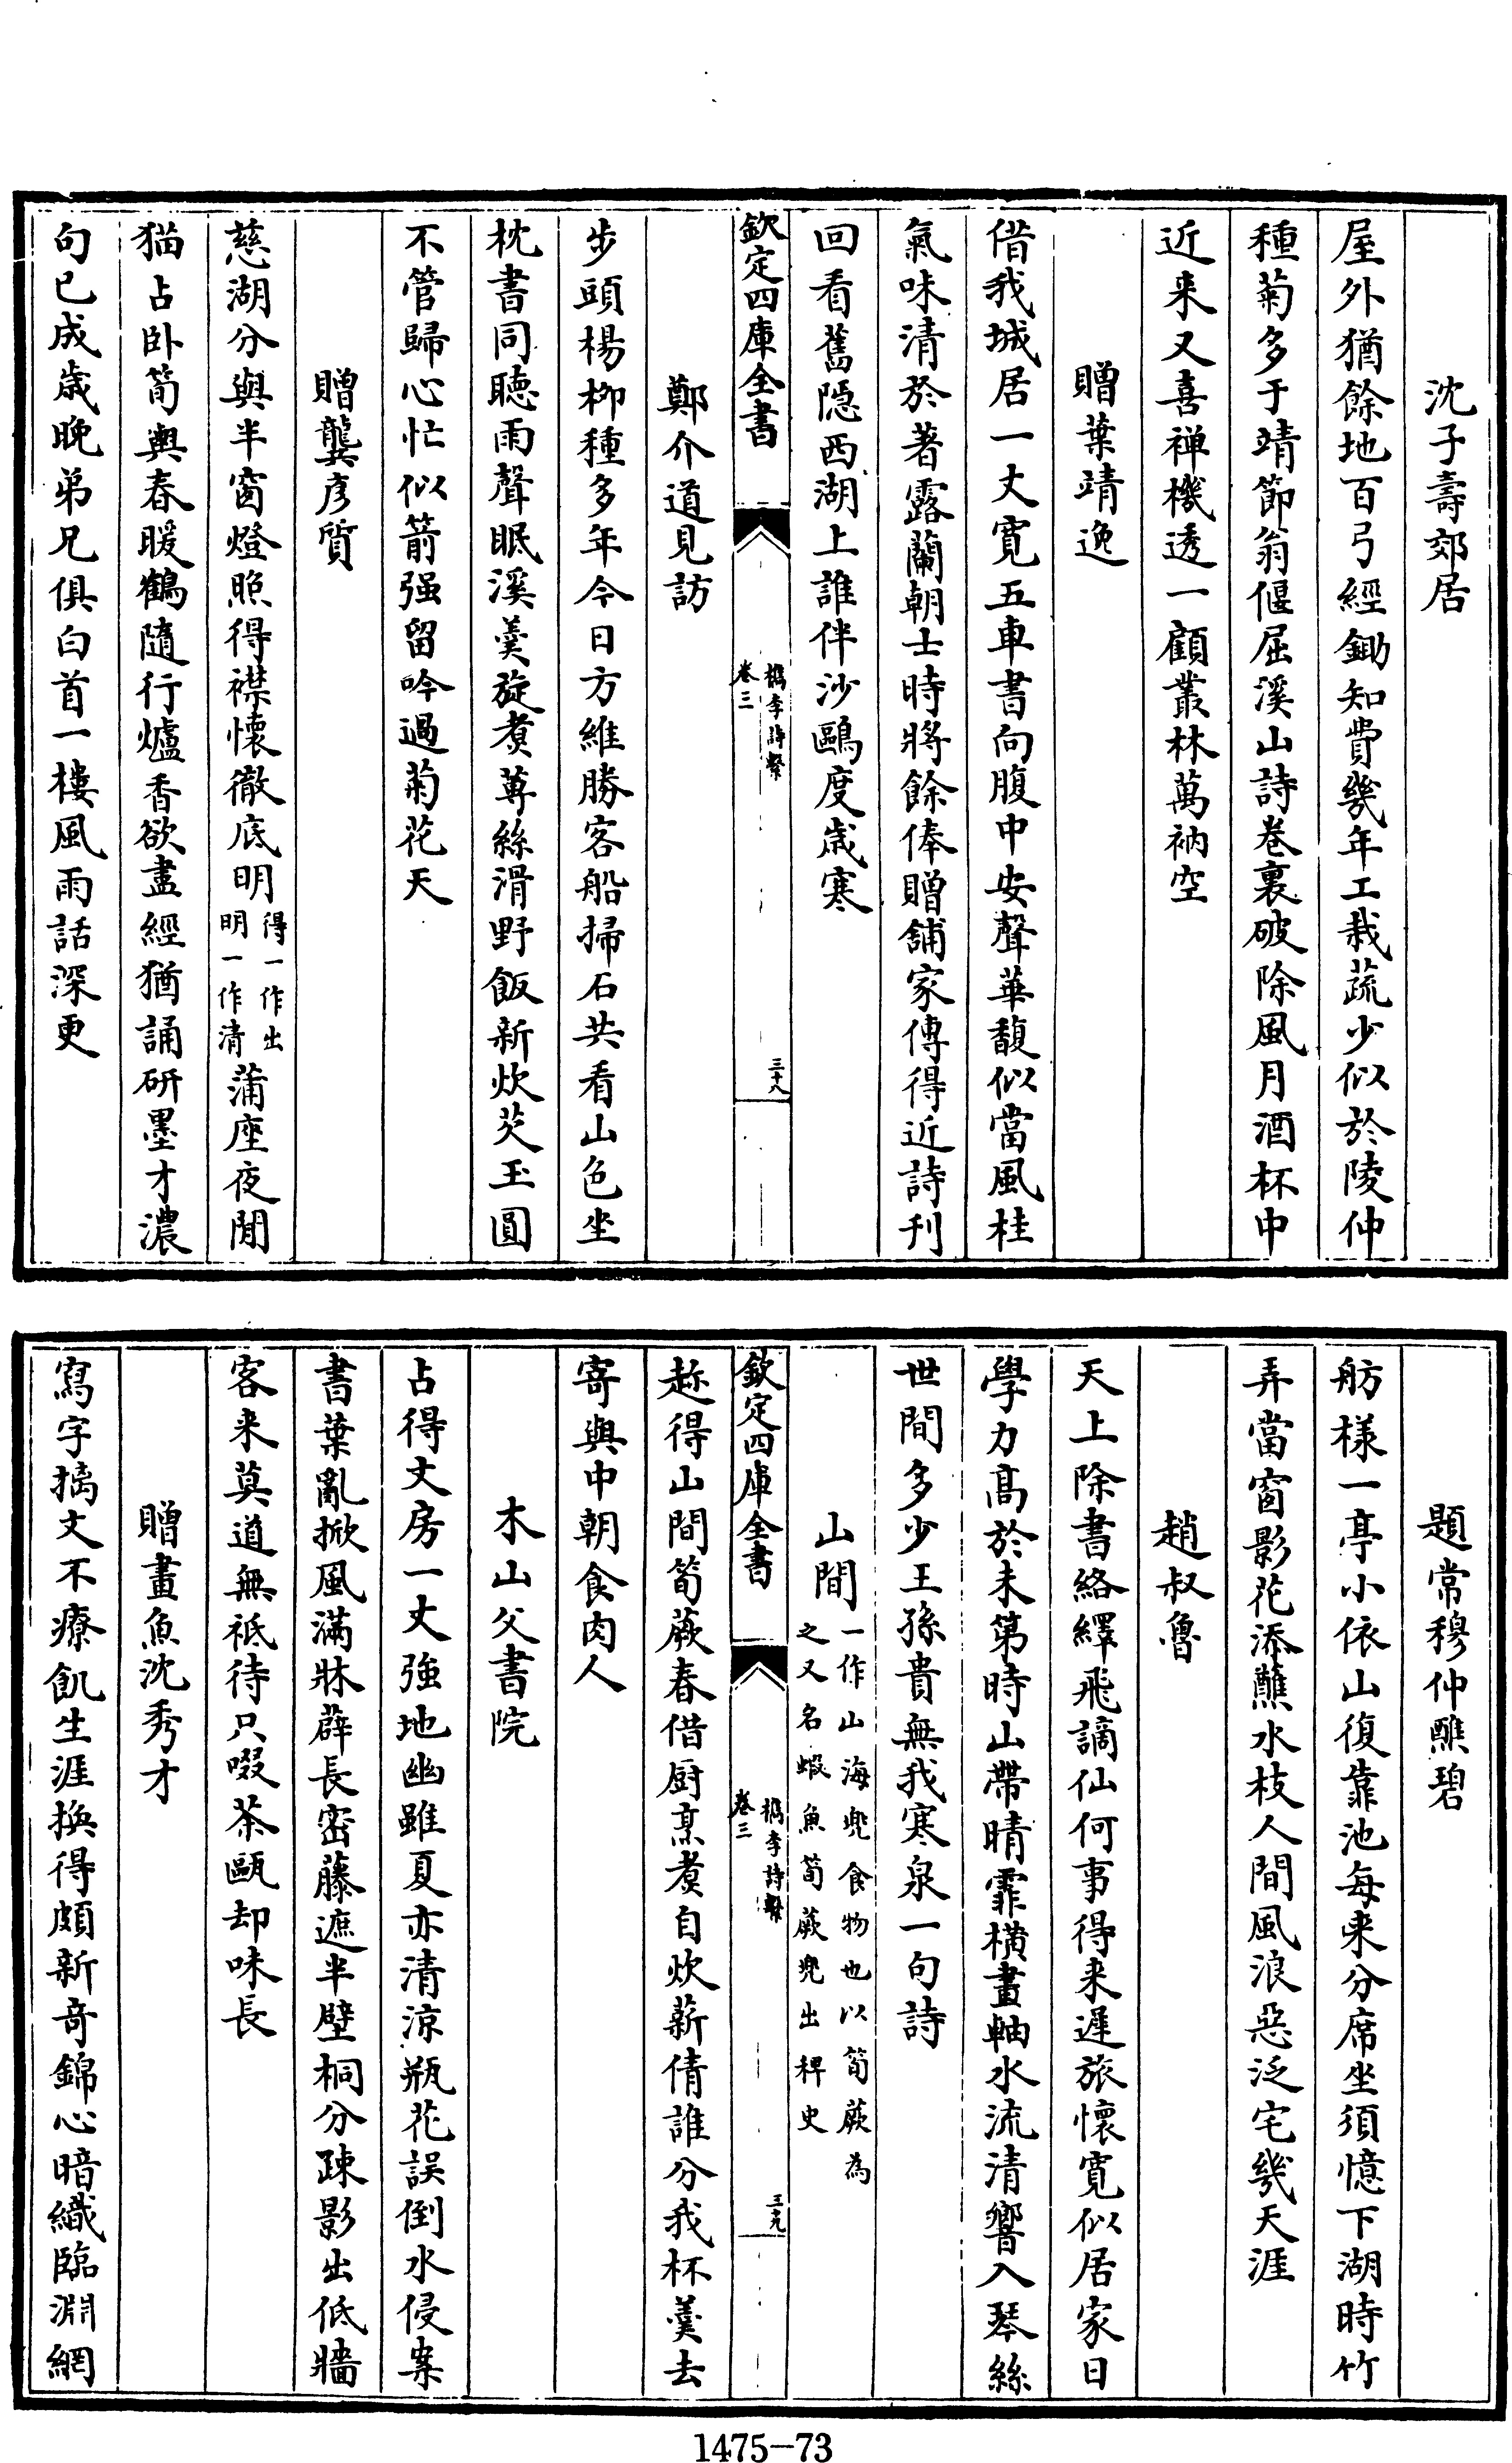 沈子壽郊居
屋外猶餘地百弓經鋤知費幾年工栽蔬少似於陵仲
種菊多于靖節翁偃屈溪山詩卷裏破除風月酒杯中
近来又喜禅機透一顧叢林萬衲空
贈葉靖逸
借我城居一丈寛五車書向腹中安聲華馥似當風桂
氣味清於著露蘭朝士時將餘俸贈舖家傳得近詩刊
回看舊隠西湖上誰伴沙鷗度歳寒
欽定四庫全書
檇李詩繫
卷三
三十八
鄭介道見訪
步頭楊栁種多年今日方維勝客船掃石共看山色坐
枕書同聴雨聲眠溪羮旋煑蓴絲滑野飯新炊芡玉圓
不管歸心忙似箭强留吟過菊花天
贈龔彦質
慈湖分與半窗燈照得襟懷徹底明得一作出明一作清蒲座夜閒
猫占卧筍輿春暖鶴隨行爐香欲盡經猶誦研墨才濃
句已成歳晚弟兄俱白首一樓風雨話深更
題常穆仲醮碧
舫様一亭小依山復靠池每来分席坐須憶下湖時竹
弄當窗影花添蘸水枝人間風浪惡泛宅幾天涯
趙叔魯
天上除書絡繹飛謫仙何事得来遲旅懷寛似居家日
學力髙於未第時山帶晴霏横畫軸水流清響入琴絲
世間多少王孫貴無我寒泉一句詩
山間一作山海兠食物也以筍蕨為之又名蝦魚筍蕨兠出稗史
欽定四庫全書
檇李詩繫
卷三
三十九
趂得山間筍蕨春借厨烹煑自炊薪倩誰分我杯羮去
寄與中朝食肉人
木山父書院
占得文房一丈強地幽雖夏亦清凉瓶花誤倒水侵案
書葉亂掀風滿牀薜長密藤遮半壁桐分疎影出低牆
客来莫道無袛待只啜茶甌却味長
贈畫魚沈秀才
寫字摛文不療飢生涯換得頗新竒錦心暗織臨淵網
1475-73